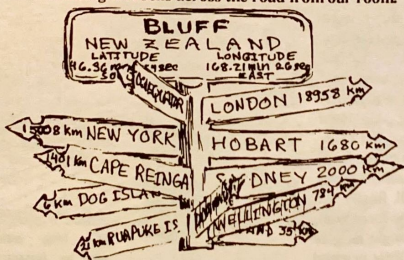 across the road from our room
BLUFF
NEW ZEALAND
LATITUDE LONGITUDE
46.36 168.21 min 26 sec
EAST
LONDON 18958 km
NEW YORK
HOBART 1680 km
1401 km CAPE REINGA
SYDNEY 2000 km
6 km DOG ISLAND
WELLINGTON 784 km
RUAPUKE IS
35 km